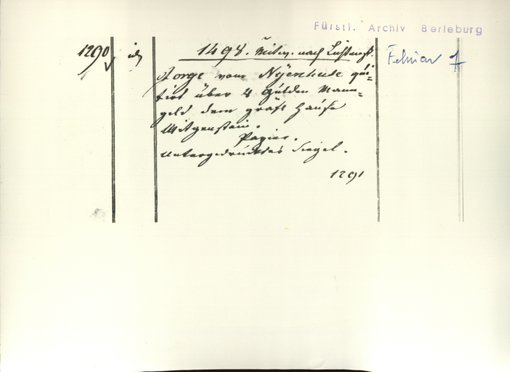 Fürstl. Archiv Berleburg
1290 1498. Mitw. nach Lichtmeß Februar 7
Jorge vom Nyenhuse qui-
tirt über 4 Gulden Mann-
geld dem gräfl Hause
Witgenstein.
Papier.
Untergedrucktes Siegel.
1291